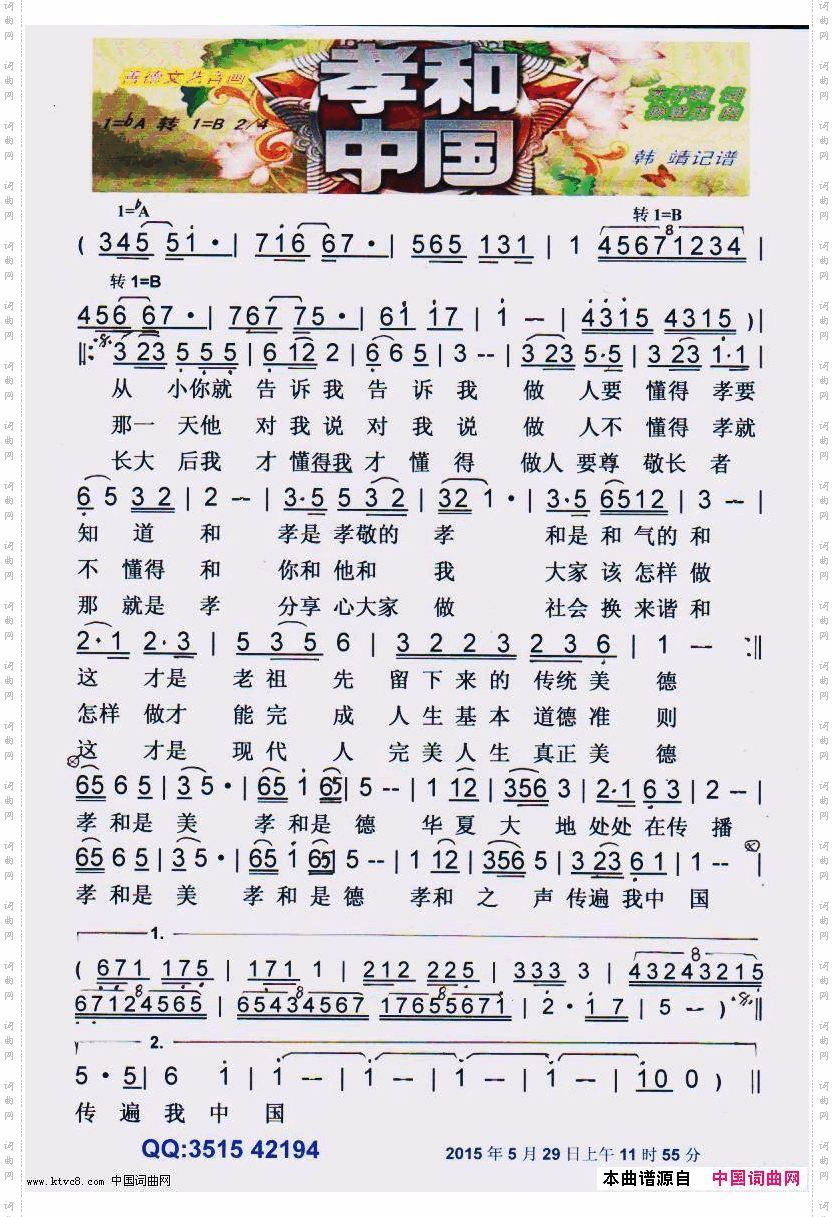 善德文艺音画
孝和
中国
1=bA 转 1=B 2/4
韩 靖记谱
1=bA
转 1=B
8
( 345 51 · | 716 67 · | 565 131 | 1 45671234 |
转 1=B
456 67 · | 767 75 · | 61 17 | 1 — | 4315 4315 )|
‖: 3 23 5 5 5 | 6 12 2 | 6 6 5 | 3 -- | 3 23 5·5 | 3 23 1·1 |
从 小你就 告 诉 我 告 诉 我 做 人要 懂得 孝要
那一 天他 对 我 说 对 我 说 做 人不 懂得 孝就
长大 后我 才 懂得我 才 懂 得 做人 要尊 敬长 者
6 5 3 2 | 2 -- | 3·5 5 3 2 | 32 1 · | 3·5 6512 | 3 -- |
知 道 和 孝是 孝敬的 孝 和是 和 气的 和
不 懂得 和 你和 他和 我 大家 该 怎样 做
那 就是 孝 分享 心大家 做 社会 换 来谐 和
2·1 2·3 | 5 3 5 6 | 3 2 2 3 2 3 6 | 1 — :‖
这 才是 老 祖 先 留 下 来 的 传统 美 德
怎样 做才 能 完 成 人 生 基 本 道德 准 则
这 才是 现 代 人 完 美 人 生 真正 美 德
65 6 5 | 3 5 · | 65 1 65 | 5 -- | 1 12 | 356 3 | 2·1 6 3 | 2 -- |
孝 和是 美 孝 和是 德 华 夏 大 地 处处 在传 播
65 6 5 | 3 5 · | 65 1 65 | 5 -- | 1 12 | 356 5 | 3 23 6 1 | 1 -- |
孝 和是 美 孝 和 是 德 孝和 之 声 传遍 我中 国
1.
8
( 671 175 | 171 1 | 212 225 | 333 3 | 43243215
8 8
67124565 | 65434567 17655671 | 2 · 1 7 | 5 — ) :‖
2.
5 · 5 | 6 1 | 1 — | 1 — | 1 — | 1 — | 100 ) ‖
传 遍 我 中 国
QQ:3515 42194
2015 年 5 月 29 日上午 11 时 55 分
本曲谱源自 中国词曲网
www.ktvc8.com 中国词曲网